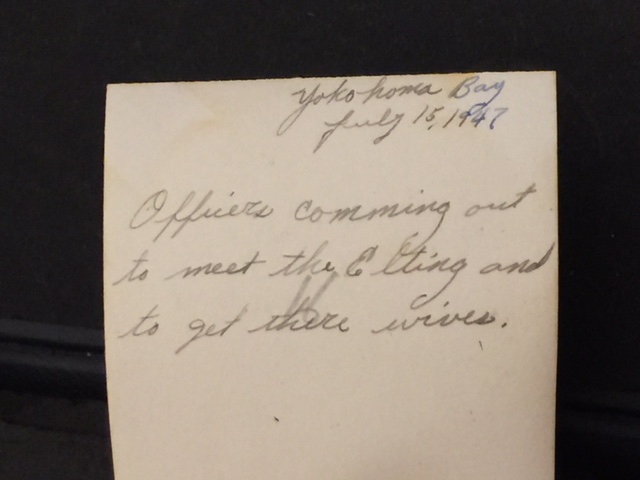 Yokohoma Bay
July 15, 1947
Officers comming out
to meet the Elting and
to get there wives.